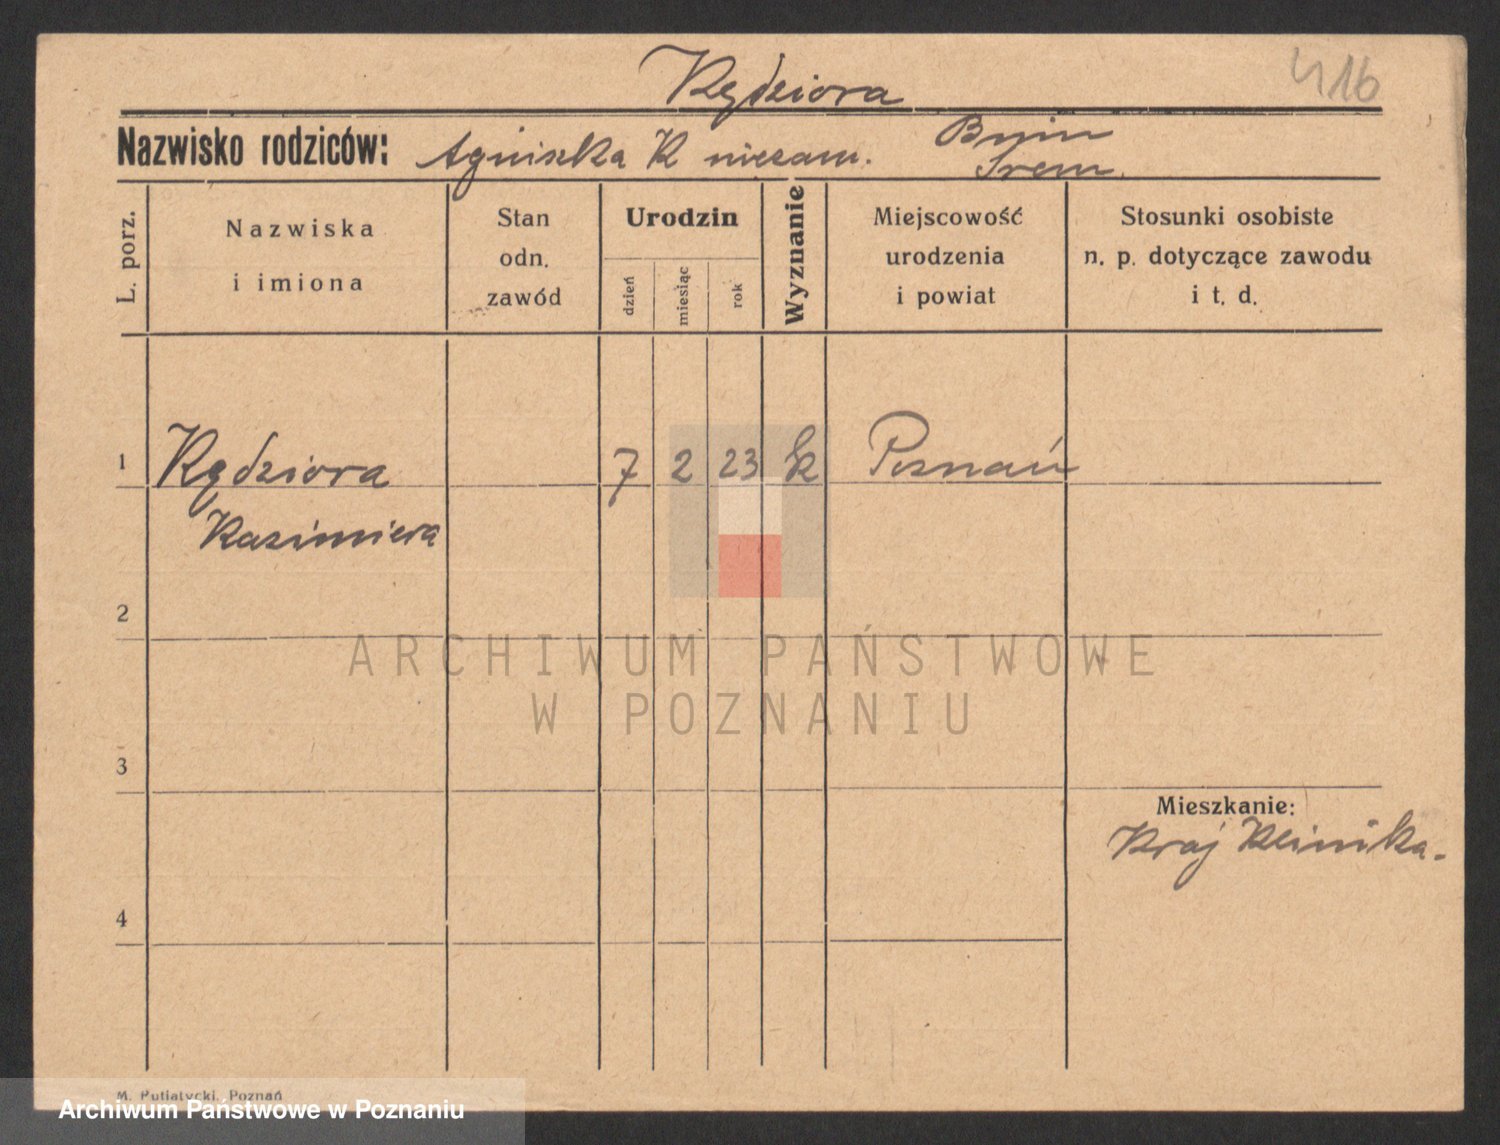 Kędziora
416
Nazwisko rodziców: Agniszka K niezam. Bnin
Śrem.
L. porz.
Nazwiska
i imiona
Stan
odn.
zawód
Urodzin
dzień
miesiąc
rok
Wyznanie
Miejscowość
urodzenia
i powiat
Stosunki osobiste
n. p. dotyczące zawodu
i t. d.
1 Kędziora 7 2 23 k Poznań
Kazimiera
2
ARCHIWUM PAŃSTWOWE
W POZNANIU
3
Mieszkanie:
Kraj Klinika.
4
M. Putiatycki, Poznań
Archiwum Państwowe w Poznaniu